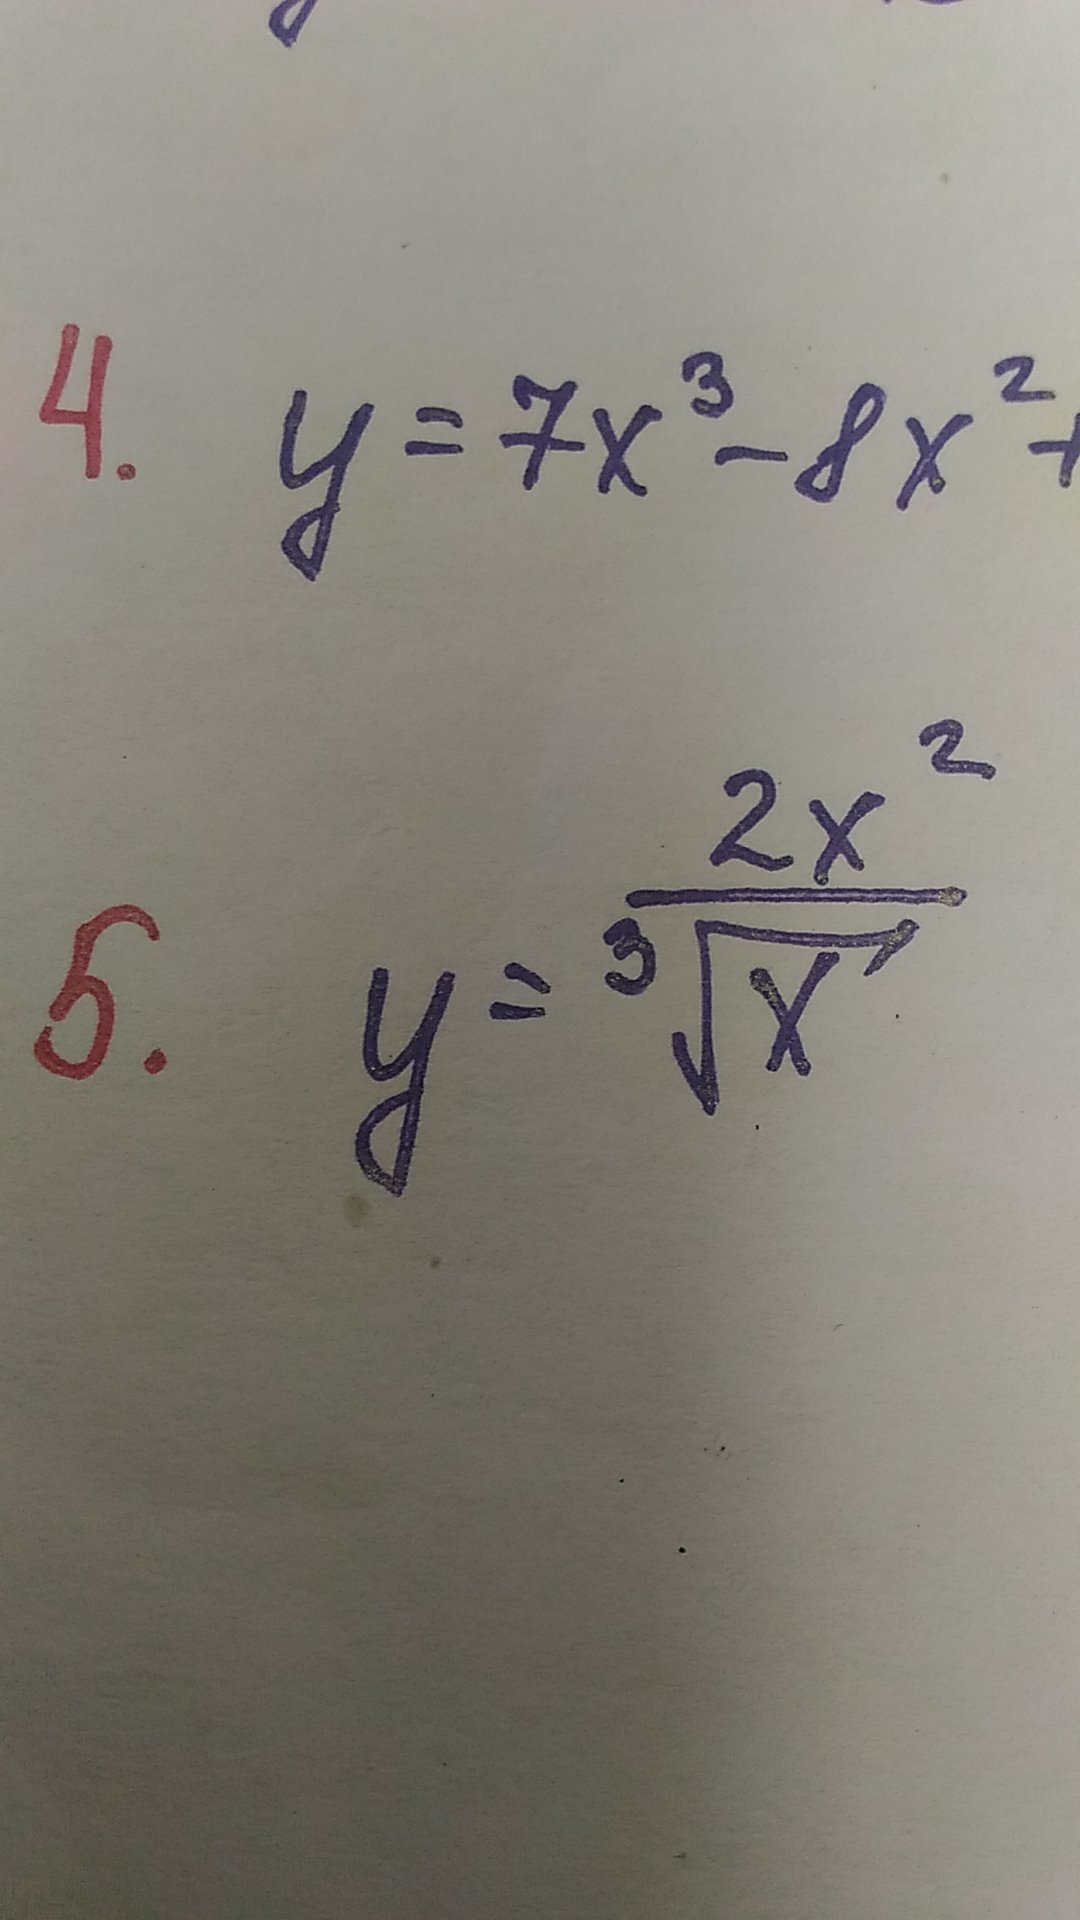 4. y = 7x³ - 8x² +
5. y = 2x² / ³√x